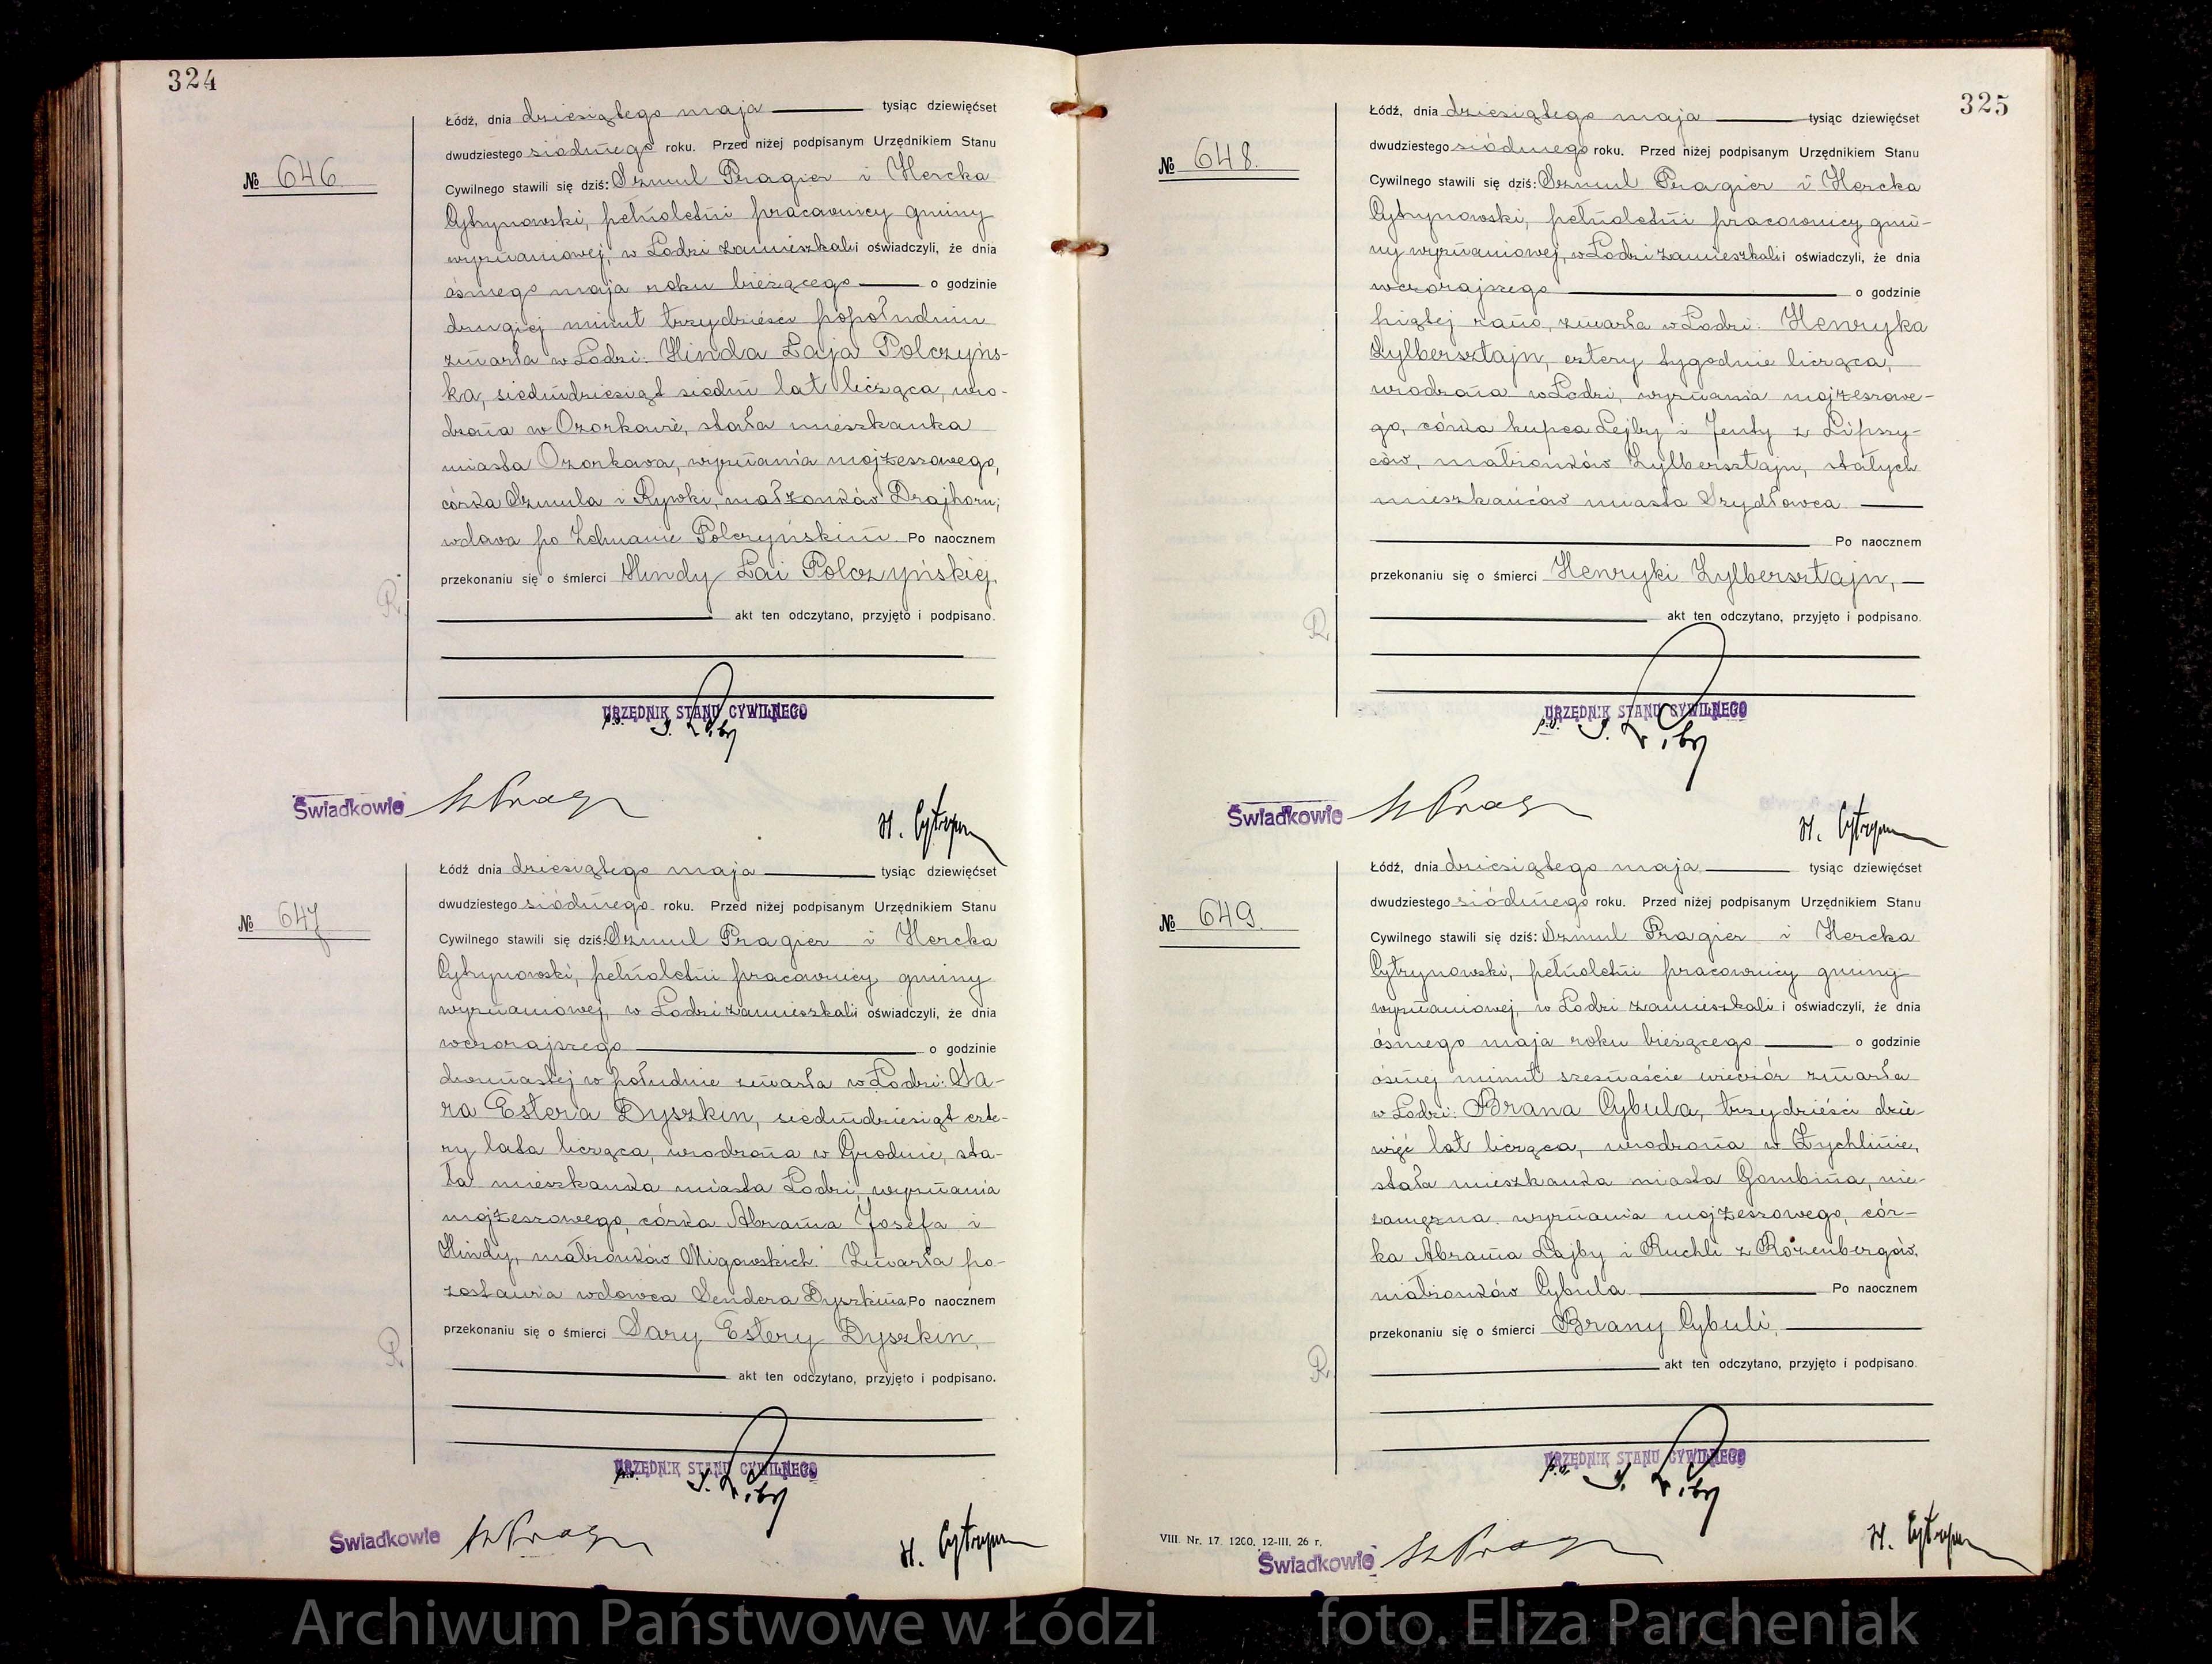 324
№ 646
Łódź, dnia dziesiątego maja tysiąc dziewięćset
dwudziestego siódmego roku. Przed niżej podpisanym Urzędnikiem Stanu
Cywilnego stawili się dziś: Szmul Pragier i Hercka
Cytrynowski, pełnoletni pracownicy gminy
wyznaniowej, w Łodzi zamieszkali i oświadczyli, że dnia
ósmego maja roku bieżącego o godzinie
drugiej minut trzydzieści popołudniu
zmarła w Łodzi: Hinda Łaja Polczyńs-
ka, siedmdziesiąt siedm lat licząca, uro-
dzona w Ozorkowie, stała mieszkanka
miasta Ozorkowa, wyznania mojżeszowego,
córka Szmula i Rywki, małżonków Drajhorn,
wdowa po Zelmanie Polczyńskim. Po naocznem
przekonaniu się o śmierci Hindy Łai Polczyńskiej
R.
akt ten odczytano, przyjęto i podpisano.
p.o. URZĘDNIK STANU CYWILNEGO
Świadkowie
H. Cytryn
№ 647
Łódź dnia dziesiątego maja tysiąc dziewięćset
dwudziestego siódmego roku. Przed niżej podpisanym Urzędnikiem Stanu
Cywilnego stawili się dziś: Szmul Pragier i Hercka
Cytrynowski, pełnoletni pracownicy gminy
wyznaniowej, w Łodzi zamieszkali i oświadczyli, że dnia
wczorajszego o godzinie
dwunastej w południe zmarła w Łodzi: Sa-
ra Estera Dyszkin, siedmdziesiąt czte-
ry lata licząca, urodzona w Grodnie, sta-
ła mieszkanka miasta Łodzi, wyznania
mojżeszowego, córka Abrama Josefa i
Hindy, małżonków Migowskich. Zmarła po-
zostawia wdowca Sendera Dyszkina Po naocznem
przekonaniu się o śmierci Sary Estery Dyszkin,
R.
akt ten odczytano, przyjęto i podpisano.
p.o. URZĘDNIK STANU CYWILNEGO
Świadkowie
H. Cytryn
325
№ 648.
Łódź, dnia dziesiątego maja tysiąc dziewięćset
dwudziestego siódmego roku. Przed niżej podpisanym Urzędnikiem Stanu
Cywilnego stawili się dziś: Szmul Pragier i Hercka
Cytrynowski, pełnoletni pracownicy gmi-
ny wyznaniowej, w Łodzi zamieszkali i oświadczyli, że dnia
wczorajszego o godzinie
piątej rano, zmarła w Łodzi: Henryka
Zylbersztajn, cztery tygodnie licząca,
urodzona w Łodzi, wyznania mojżeszowe-
go, córka kupca Lejby i Jenty z Lipszy-
ców, małżonków Zylbersztajn, stałych
mieszkańców miasta Szydłowca
Po naocznem
przekonaniu się o śmierci Henryki Zylbersztajn,
R.
akt ten odczytano, przyjęto i podpisano.
p.o. URZĘDNIK STANU CYWILNEGO
Świadkowie
H. Cytryn
№ 649.
Łódź, dnia dziesiątego maja tysiąc dziewięćset
dwudziestego siódmego roku. Przed niżej podpisanym Urzędnikiem Stanu
Cywilnego stawili się dziś: Szmul Pragier i Hercka
Cytrynowski, pełnoletni pracownicy gminy
wyznaniowej, w Łodzi zamieszkali i oświadczyli, że dnia
ósmego maja roku bieżącego o godzinie
ósmej minut szesnaście wieczór zmarła
w Łodzi: Brana Cybula, trzydzieści dzie-
więć lat licząca, urodzona w Żychlinie,
stała mieszkanka miasta Gombina, nie-
zamężna, wyznania mojżeszowego, cór-
ka Abrama Lajby i Ruchli z Rozenbergów,
małżonków Cybula Po naocznem
przekonaniu się o śmierci Brany Cybuli,
R.
akt ten odczytano, przyjęto i podpisano.
p.o. URZĘDNIK STANU CYWILNEGO
VIII. Nr. 17. 1200. 12-III. 26 r.
Świadkowie
H. Cytryn
Archiwum Państwowe w Łódzi foto. Eliza Parcheniak